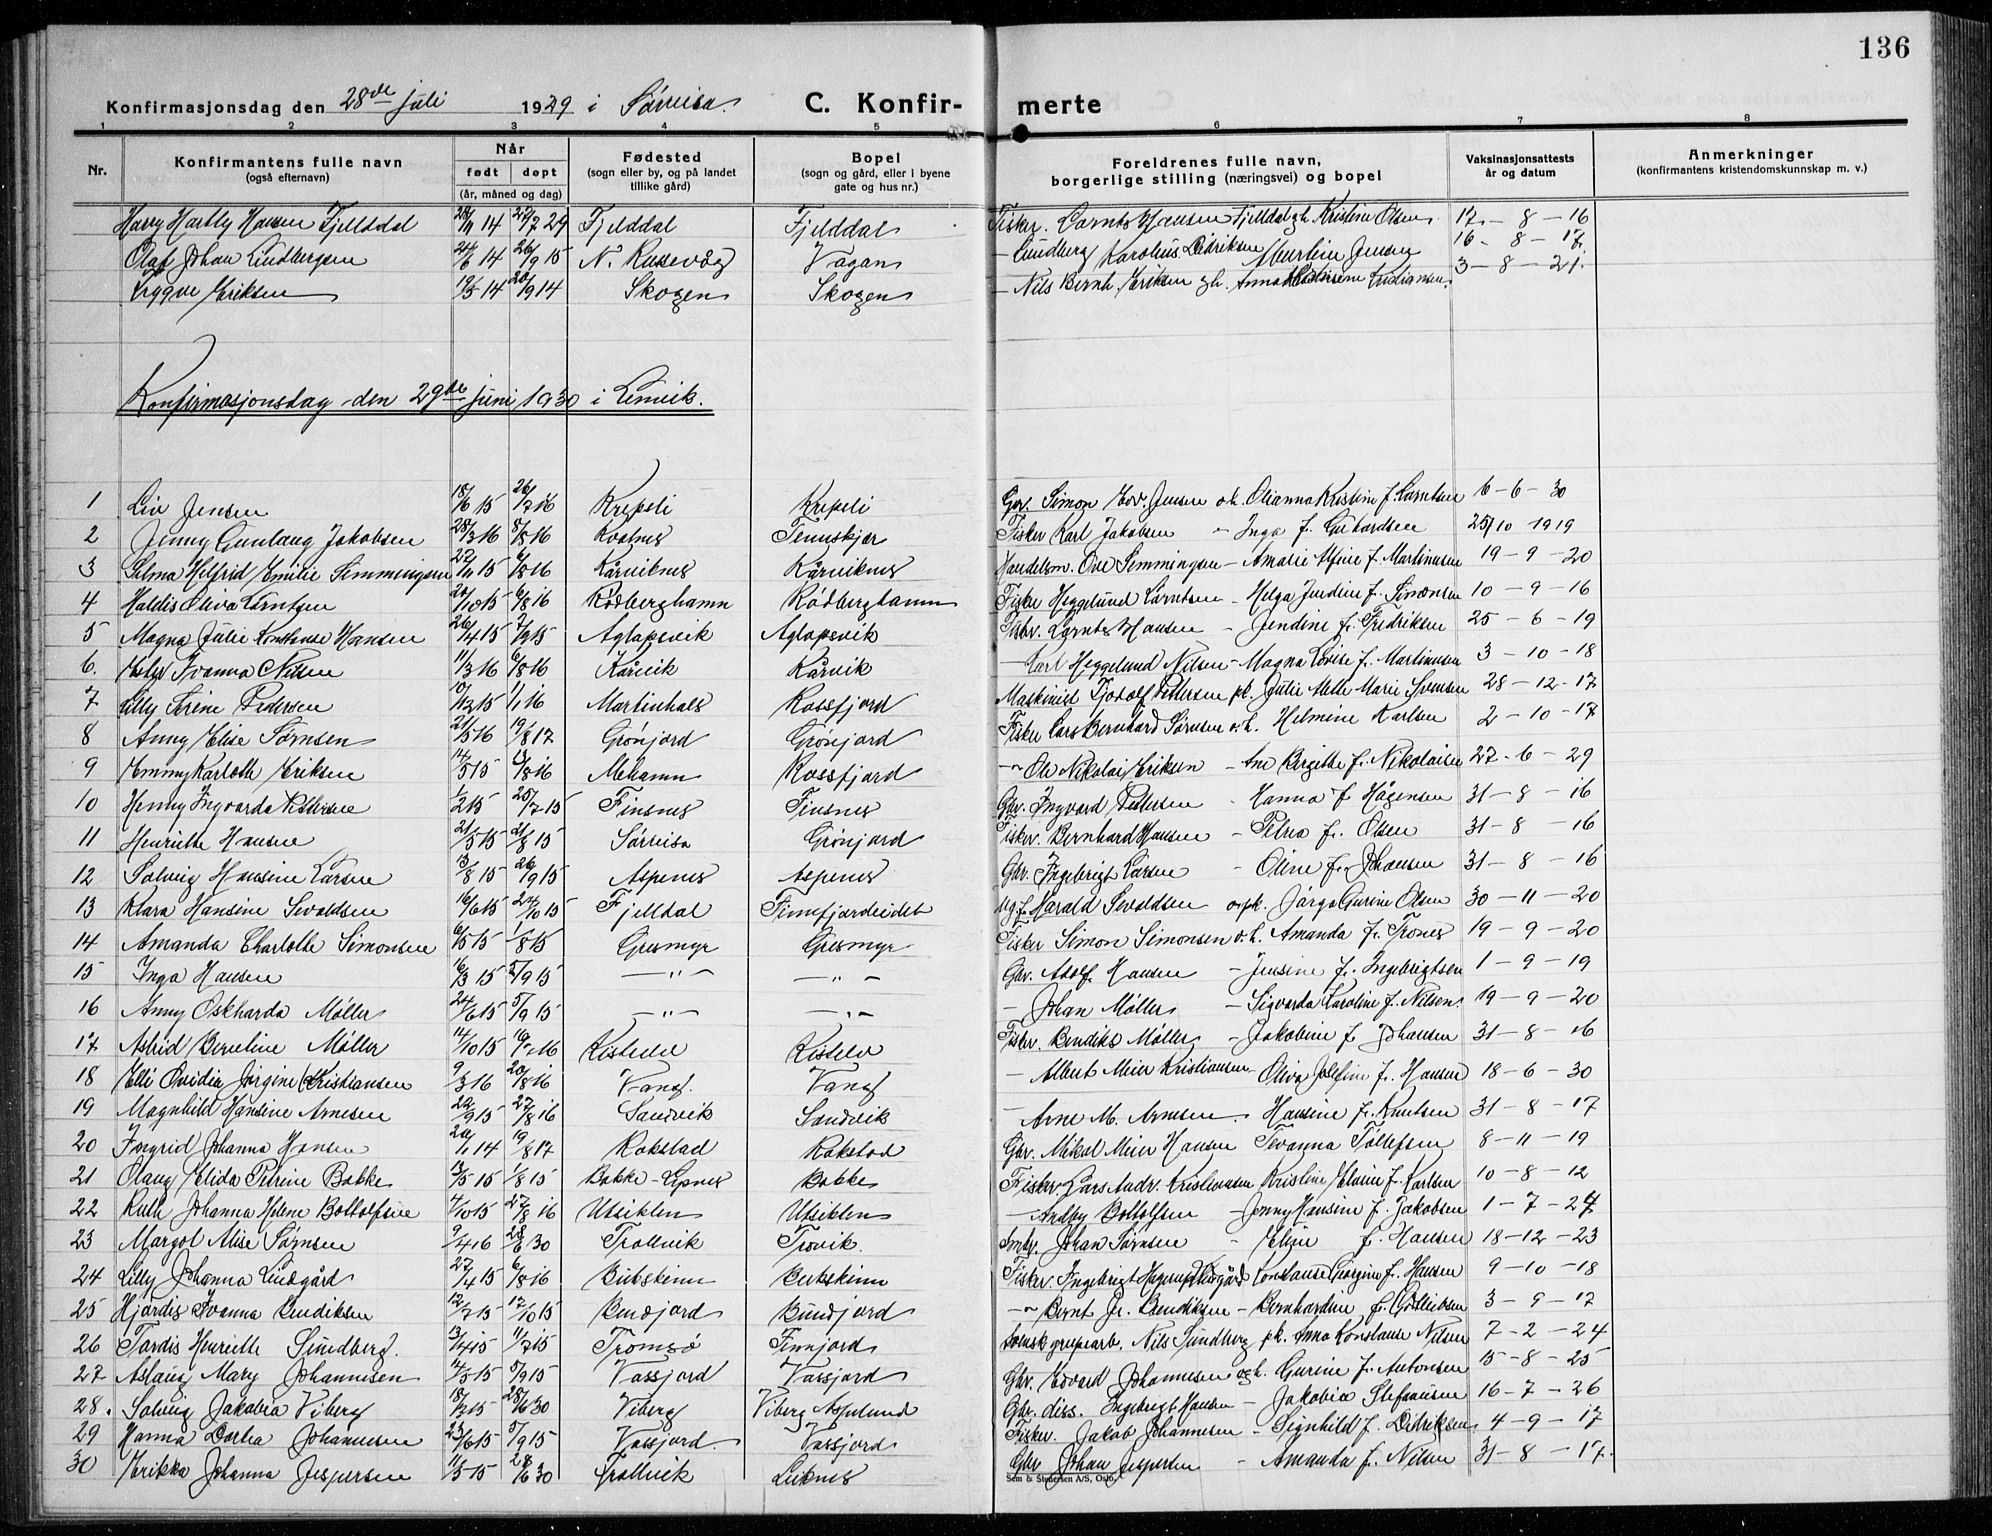 136
Konfirmasjonsdag den 28de juli 1929 i Sørreisa. C. Konfir- merte
1 2 3 4 5 6 7 8
Nr. Konfirmantens fulle navn (også efternavn) Når født døpt (år, måned og dag) Fødested (sogn eller by, og på landet tillike gård) Bopel (sogn og gård, eller i byene gate og hus nr.) Foreldrenes fulle navn, borgerlige stilling (næringsvei) og bopel Vaksinasjonsattests år og datum Anmerkninger (konfirmantens kristendomskunnskap m. v.)
Harry Hartly Hansen Fjelldal 14 29 Fjelddal Fjelddal Fisker Hansen Fjelldal Kristine Olsen 17 - 8 - 16
Olaf Johan Lindbergsen 14 26/9 15 N. Vågan - Lundberg Karolius Jensen 16 - 8 - 17
Trygve Eriksen 14 20/9 14 Skogen Skogen - Nils Bernh. Eriksen gh. Anna Kristiansen 3 - 8 - 21
Konfirmasjonsdag den 29de juni 1930 i Lenvik.
1 Liv Jensen 18/6 15 26/7 16 Krepeli Krepeli Gbr. Simon Edv. Jensen o.h. Olianna Kristine f. Lorntsen 6 - 6 - 30
2 Jenny Gunlaug Jakobsen 28/3 16 6/8 16 Kvalnes Finnskjer Fisker Karl Jakobsen - Inga f. 25/10 1919
3 Selma Helfrid Emilie Simmingsen 27/11 15 6/8 16 Kårviknes Kårviknes Handelsm. Ove Semmingsen - Amalie f. Martinusen 19 - 9 - 20
4 Haldis Oliva Lorntsen 24/10 15 6/8 16 Rødberghamn Rødberghamn Fisker Heggelund Lorntsen - Helga f. Simonsen 10 - 9 - 16
5 Magna Julie Konstanse Hansen 26/4 15 7/9 15 Aglapsvik Aglapsvik Hansen - Jendine f. Fredriksen 25 - 6 - 19
6. Ivanna Nilsen 11/3 16 6/8 16 Kårvik Kårvik - Karl Heggelund Nilsen - Magna Lovise f. Martinusen 3 - 10 - 18
7 Lilly Serine Pedersen 10/12 15 1/1 16 Martinhals Rossfjord Maskinist Tjodolf Pettersen pk. Julie Mette Marie Svensen 28 - 12 - 17
8 Anny Elise Sørnsen 21/5 16 19/8 17 Grønjord Grønjord Fisker Lars Bernhard Sørnsen o.h. Helmine Karlsen 2 - 10 - 17
9 Emmy Karlotte Eriksen 14/5 15 13/8 16 Mehamn Rossfjord -"- Ole Nikolai Eriksen - Ane Birgitte f. Nikolaisen 27 - 6 - 29
10 Henny Ingvarda Pettersen 1/2 15 25/7 15 Finsnes Finsnes Gbr. Ingvard Pettersen - Hanna f. Hågensen 31 - 8 - 16
11 Henriette Hansen 21/5 15 21/8 15 Sørreisa Grønjord Fisker. Bernhard Hansen - Petra f. Olsen 31 - 8 - 16
12 Solveig Hansine Larsen 13/8 15 26/9 15 Aspenes Aspenes Gbr. Ingebrigt Larsen - Oline f. Johansen 31 - 8 - 16
13 Klara Hansine Sevaldsen 16/6 15 24/10 15 Fjelldal Finnfjordeidet Harald Sevaldsen Gurine Olsen 30 - 11 - 20
14 Amanda Charlotte Simonsen 6/5 15 1/8 15 Gresmyr Gresmyr Fisker Simon Simonsen o.h. Amanda f. Trones 19 - 9 - 20
15 Inga Hansen 16/3 15 5/9 15 -"- -"- Gbr. Adolf Hansen - Jensine f. Ingebrigtsen 1 - 9 - 19
16 Anny Oskharda Møller 24/6 15 5/9 15 -"- -"- - Johan Møller - Sigvarda Karoline f. Nilsen 19 - 9 - 20
17 Astrid Berntine Møller 14/10 15 16 Kistefos Fisker. Bendiks Møller - Jakobine f. Johansen 31 - 8 - 16
18 Elli Ovidia Jørgine Kristiansen 9/3 16 20/8 16 Vang Vang - Albert Meier Kristiansen - Oliva Josefine f. Hansen 18 - 6 - 30
19 Magnhild Hansine Arnesen 22/9 15 27/8 16 Sandvik Sandvik - Arne M. Arnesen Hansine f. Knutsen 31 - 8 - 17
20 Ingrid Johanna Hansen 20/1 14 19/8 17 Rakstad Rakstad Gbr. Mikal Meier Hansen Tollefsen 8 - 11 - 19
21 Olaug Elida Petrine Bakke 13/5 15 1/8 15 Bakke - Gipnes Bakke Fisker. Lars Andr. Kristiansen Kristine f. Karlsen 10 - 8 - 12
22 Ruth Johanna Helene Bottolfsen 4/10 15 27/8 16 Utsikten Utsikten - Bottolfsen - Jenny Hansine f. Jakobsen 1 - 7 - 27
23 Margot Alise Sørnsen 9/4 16 28/6 30 Trollvik Trovik. Johan Sørnsen - Eline f. Hansen 18 - 12 - 23
24 Lilly Johanna Lindgård 27/4 15 6/8 16 Bukskinn Bukskinn Fisker. Ingebrigt Konstanse Georgine f. Hansen 9 - 10 - 18
25 Hjørdis Ivanna Bendiksen 12/7 15 17/10 15 Bundjord Bundjord -"- Bernt Bendiksen - Bernhardine f. 3 - 9 - 17
26 Tordis Henriette Sundberg. 13/4 15 11/7 15 Tromsø Finnjord svensk grubearb. Nils Sundberg pk. Anna Konstanse Nilsen 7 - 2 - 24
27 Aslaug Mary Johannesen 14/5 15 5/9 15 Vassjord Vassjord Gbr. Edvard Johannesen og h. Gurine f. Antonsen 15 - 8 - 25
28. Solveig Jakobia Viberg 18/2 15 28/6 30 Viberg Viberg Asplund Gbr. diss. Ingebrigt Hansen - Jakobia Stefansen 16 - 7 - 26
29 Hanna Dortea Johannesen 23/6 15 5/9 15 Vassjord. Vassjord Fisker. Jakob Johannesen - Signhild f. Didriksen 4 - 9 - 17
30 Erikka Johanna Jespersen 11/5 15 28/6 30 Trollvik Leiknes Gbr Johan Jespersen - Amanda f. Nilsen 31 - 8 - 17.
Sem & Stenersen A/S, Oslo.